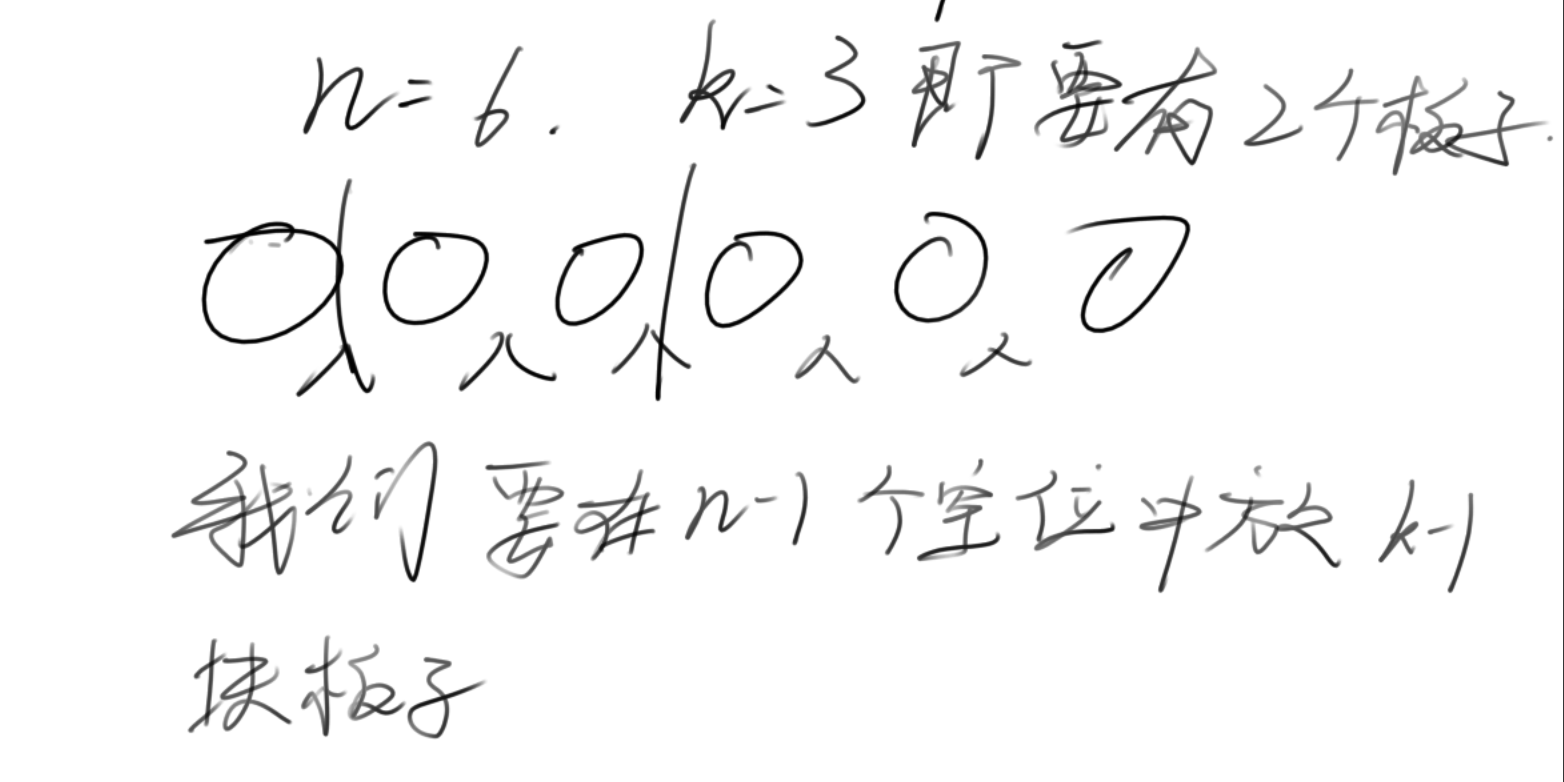 n=6. k=3 即要有2个板子.
我们要在n-1个空位中放k-1
块板子